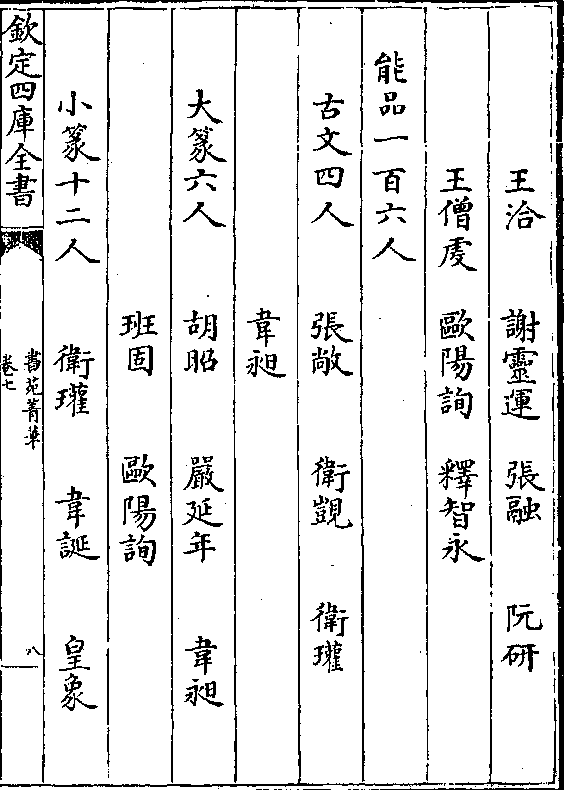 王洽　謝靈運　張融　阮研
王僧虔　歐陽詢　釋智永
能品一百六人
古文四人　張敞　衛覬　衛瓘
韋昶
大篆六人　胡昭　嚴延年　韋昶
班固　歐陽詢
小篆十二人　衛瓘　韋誕　皇象
欽定四庫全書
書苑菁華
卷七
八